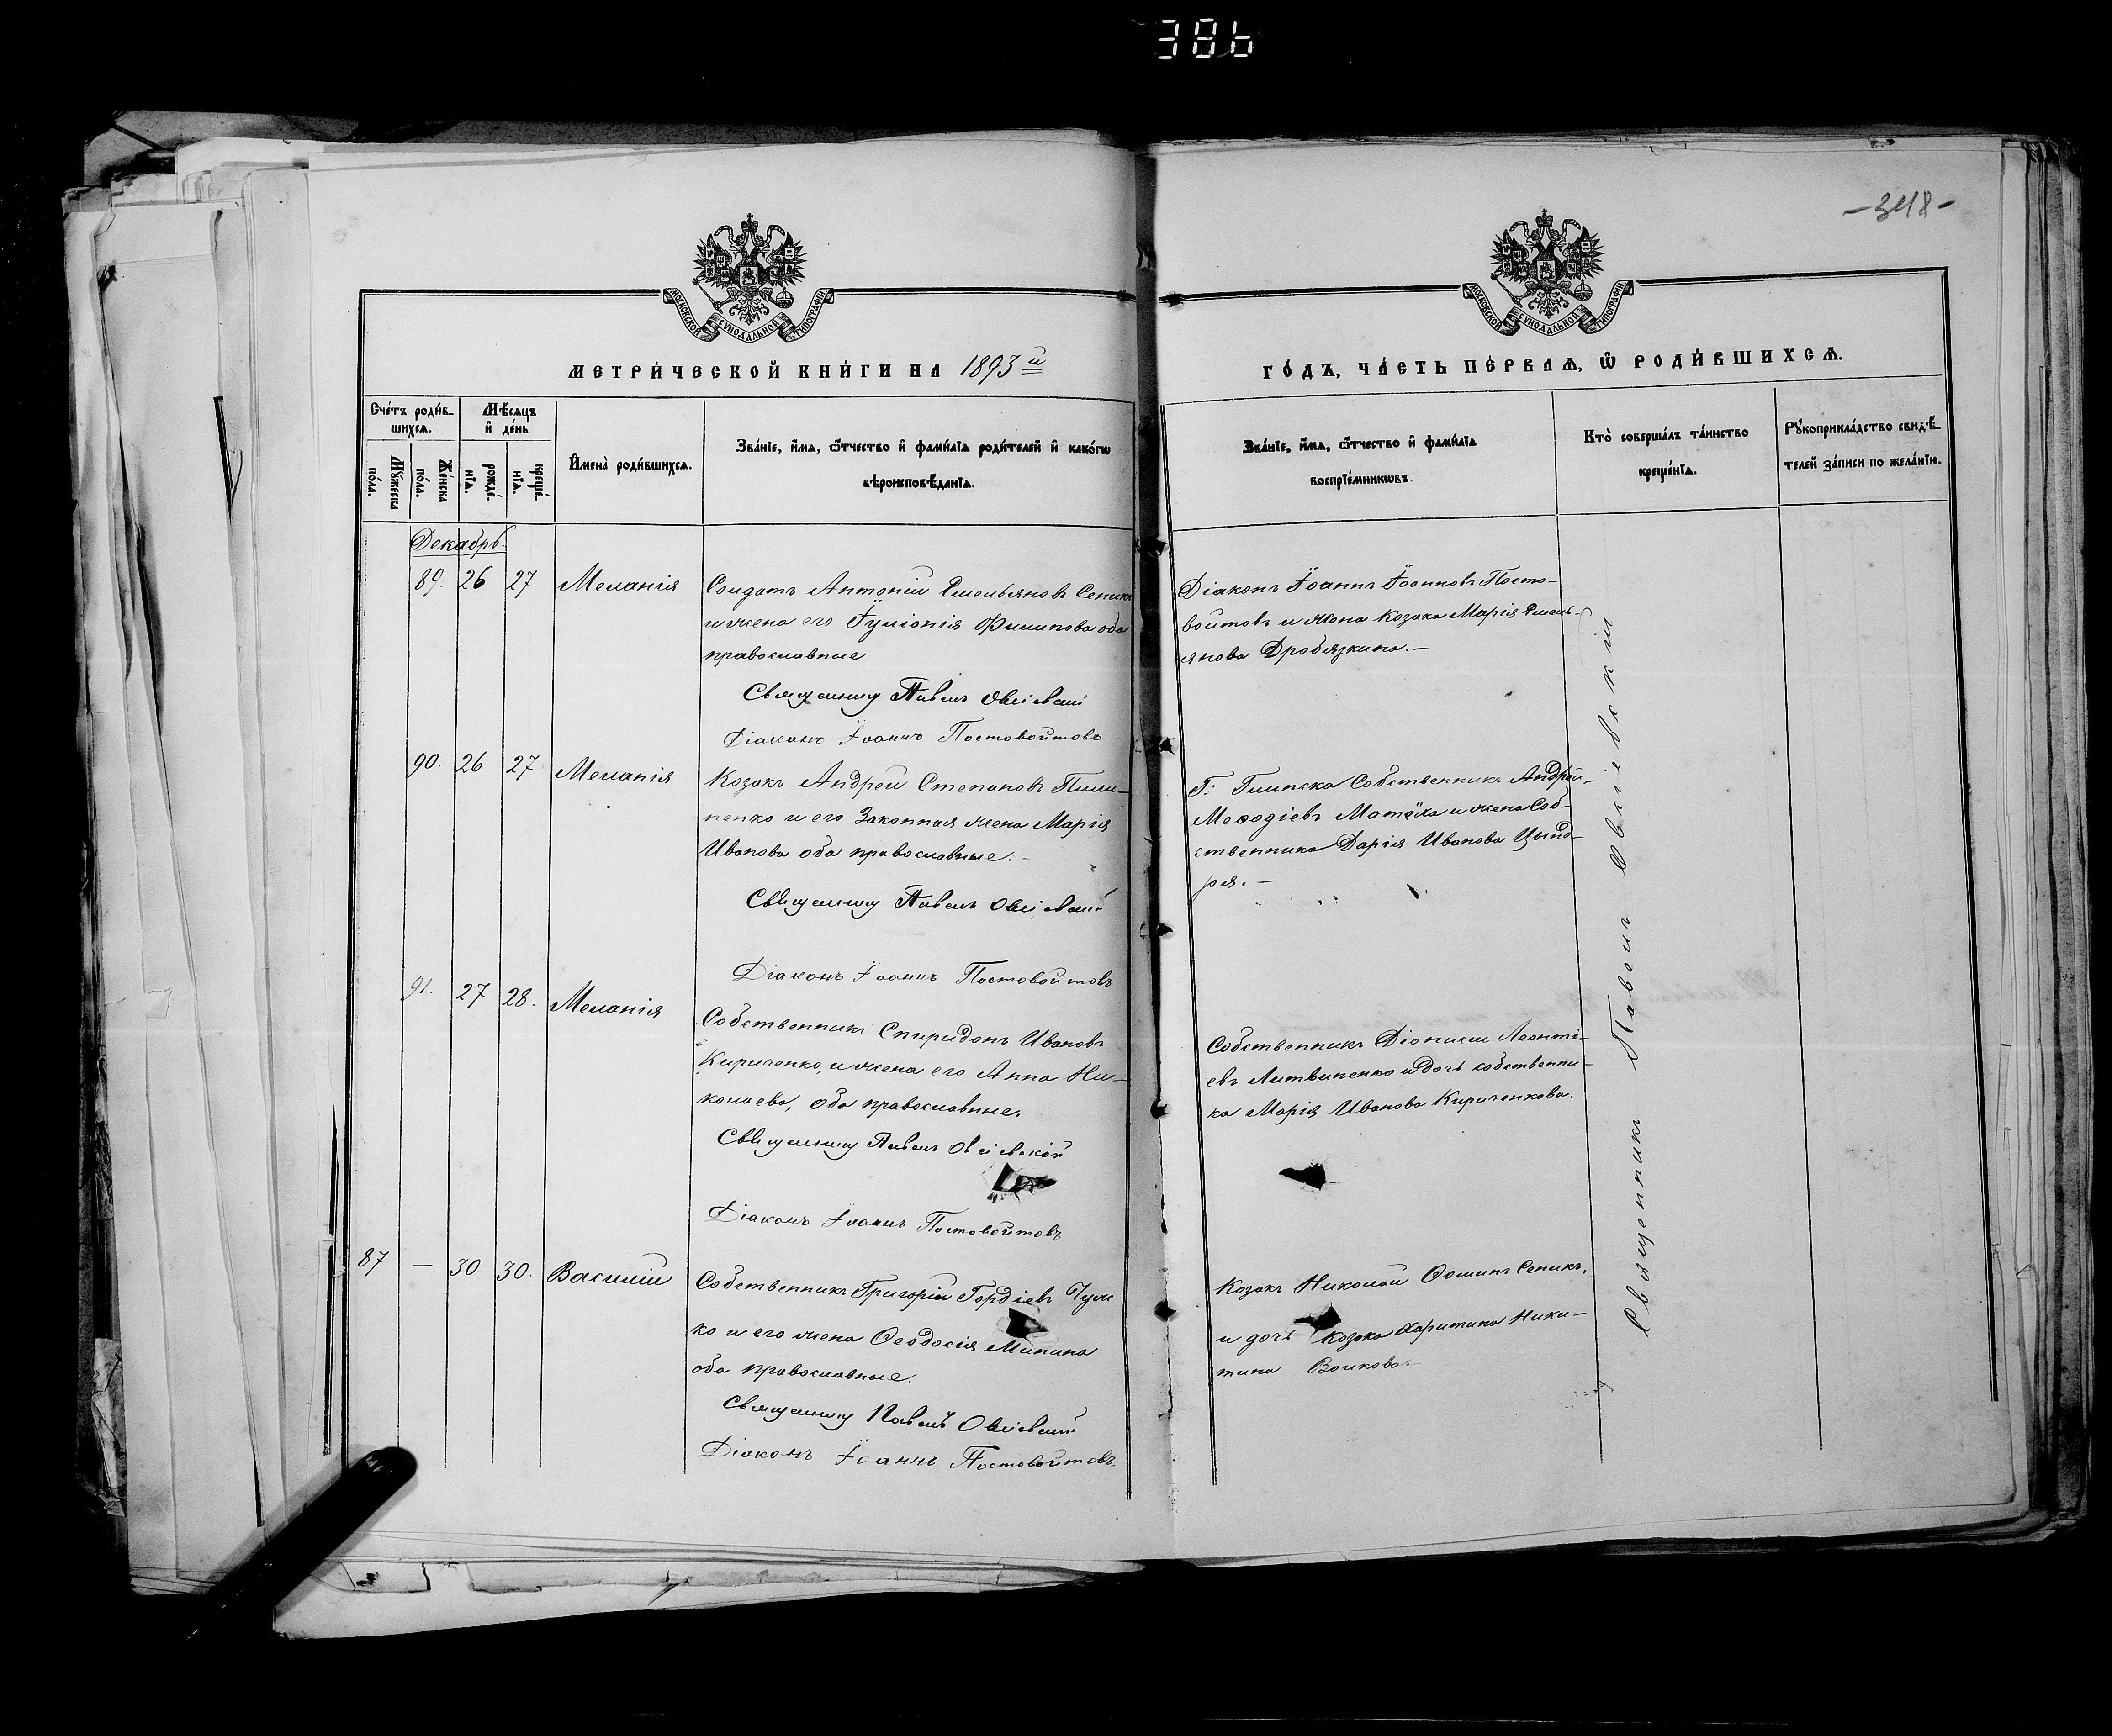 386
-348-
МОСКОВСКОЙ СѴНОДАЛЬНОЙ ТИПОГРАФІИ
МОСКОВСКОЙ СѴНОДАЛЬНОЙ ТИПОГРАФІИ
МЕТРИ́ЧЕСКОЙ КНИ́ГИ НА 1893й
ГО́ДЪ, ЧА́СТЬ ПЕ́РВАѦ, Ѡ҆ РОДИ́ВШИХСѦ.
Сче́тъ роди́в-
шихсѧ.
Мꙋ́жеска
по́ла.
Же́нска
по́ла.
Мѣ́сѧцъ
и҆ де́нь
рожде́-
нїѧ.
креще́-
нїѧ.
И҆мена̀ роди́вшихсѧ.
Зва́нїе, и҆́мѧ, ѻ҆́тчество и҆ фами́лїѧ роди́телей и҆ како́гѡ
вѣроисповѣ́данїѧ.
Зва́нїе, и҆́мѧ, ѻ҆́тчество и҆ фами́лїѧ
воспрїе́мникѡвъ.
Кто̀ соверша́лъ та́инство
креще́нїѧ.
Рꙋкоприкла́дство свидѣ́-
телей за́писи по жела́нїю.
Декабрь.
89. 26 27 Меланія
Солдатъ Антоній Емельяновъ Сепик
и жена его Іуліонія Филипова оба
православные
Священнику Павелъ Овсіевскій
Діаконъ Іоаннъ Постовойтовъ
Діаконъ Іоаннъ Іоанновъ Посто-
войтовъ и жена козака Марія Емель-
янова Дробязкина.-
90. 26 27 Меланія
Козакъ Андрей Степановъ Пили-
пенко и его законная жена Марія
Иванова оба православные.-
Священнику Павелъ Овсіевскій
Діаконъ Іоаннъ Постовойтовъ
Г. Глинска Собственникъ Андрей
Меѳодіевъ Матёха и жена Соб-
ственника Дарія Иванова Цынд-
ря.-
91. 27 28. Меланія
Собственникъ Спиридонъ Ивановъ
Кириченко, и жена его Анна Ни-
колаева, оба православные.
Священнику Павелъ Овсіевскій
Діаконъ Іоаннъ Постовойтовъ
Собственникъ Діонисій Леонті-
евъ Литвиненко и дочь собственни-
ка Марія Иванова Кириченкова.
87 - 30 30. Василій
Собственникъ Григорій Гордіевъ
ко и его жена Ѳеодосія Минина
оба православные.
Священнику Павелъ Овсіевскій
Діаконъ Іоаннъ Постовойтовъ
Козакъ Николай Ѳоминъ Сепикъ,
и дочь козака Харитина Ники-
тина Волкова.-
Священникъ Павелъ Овсіевскій